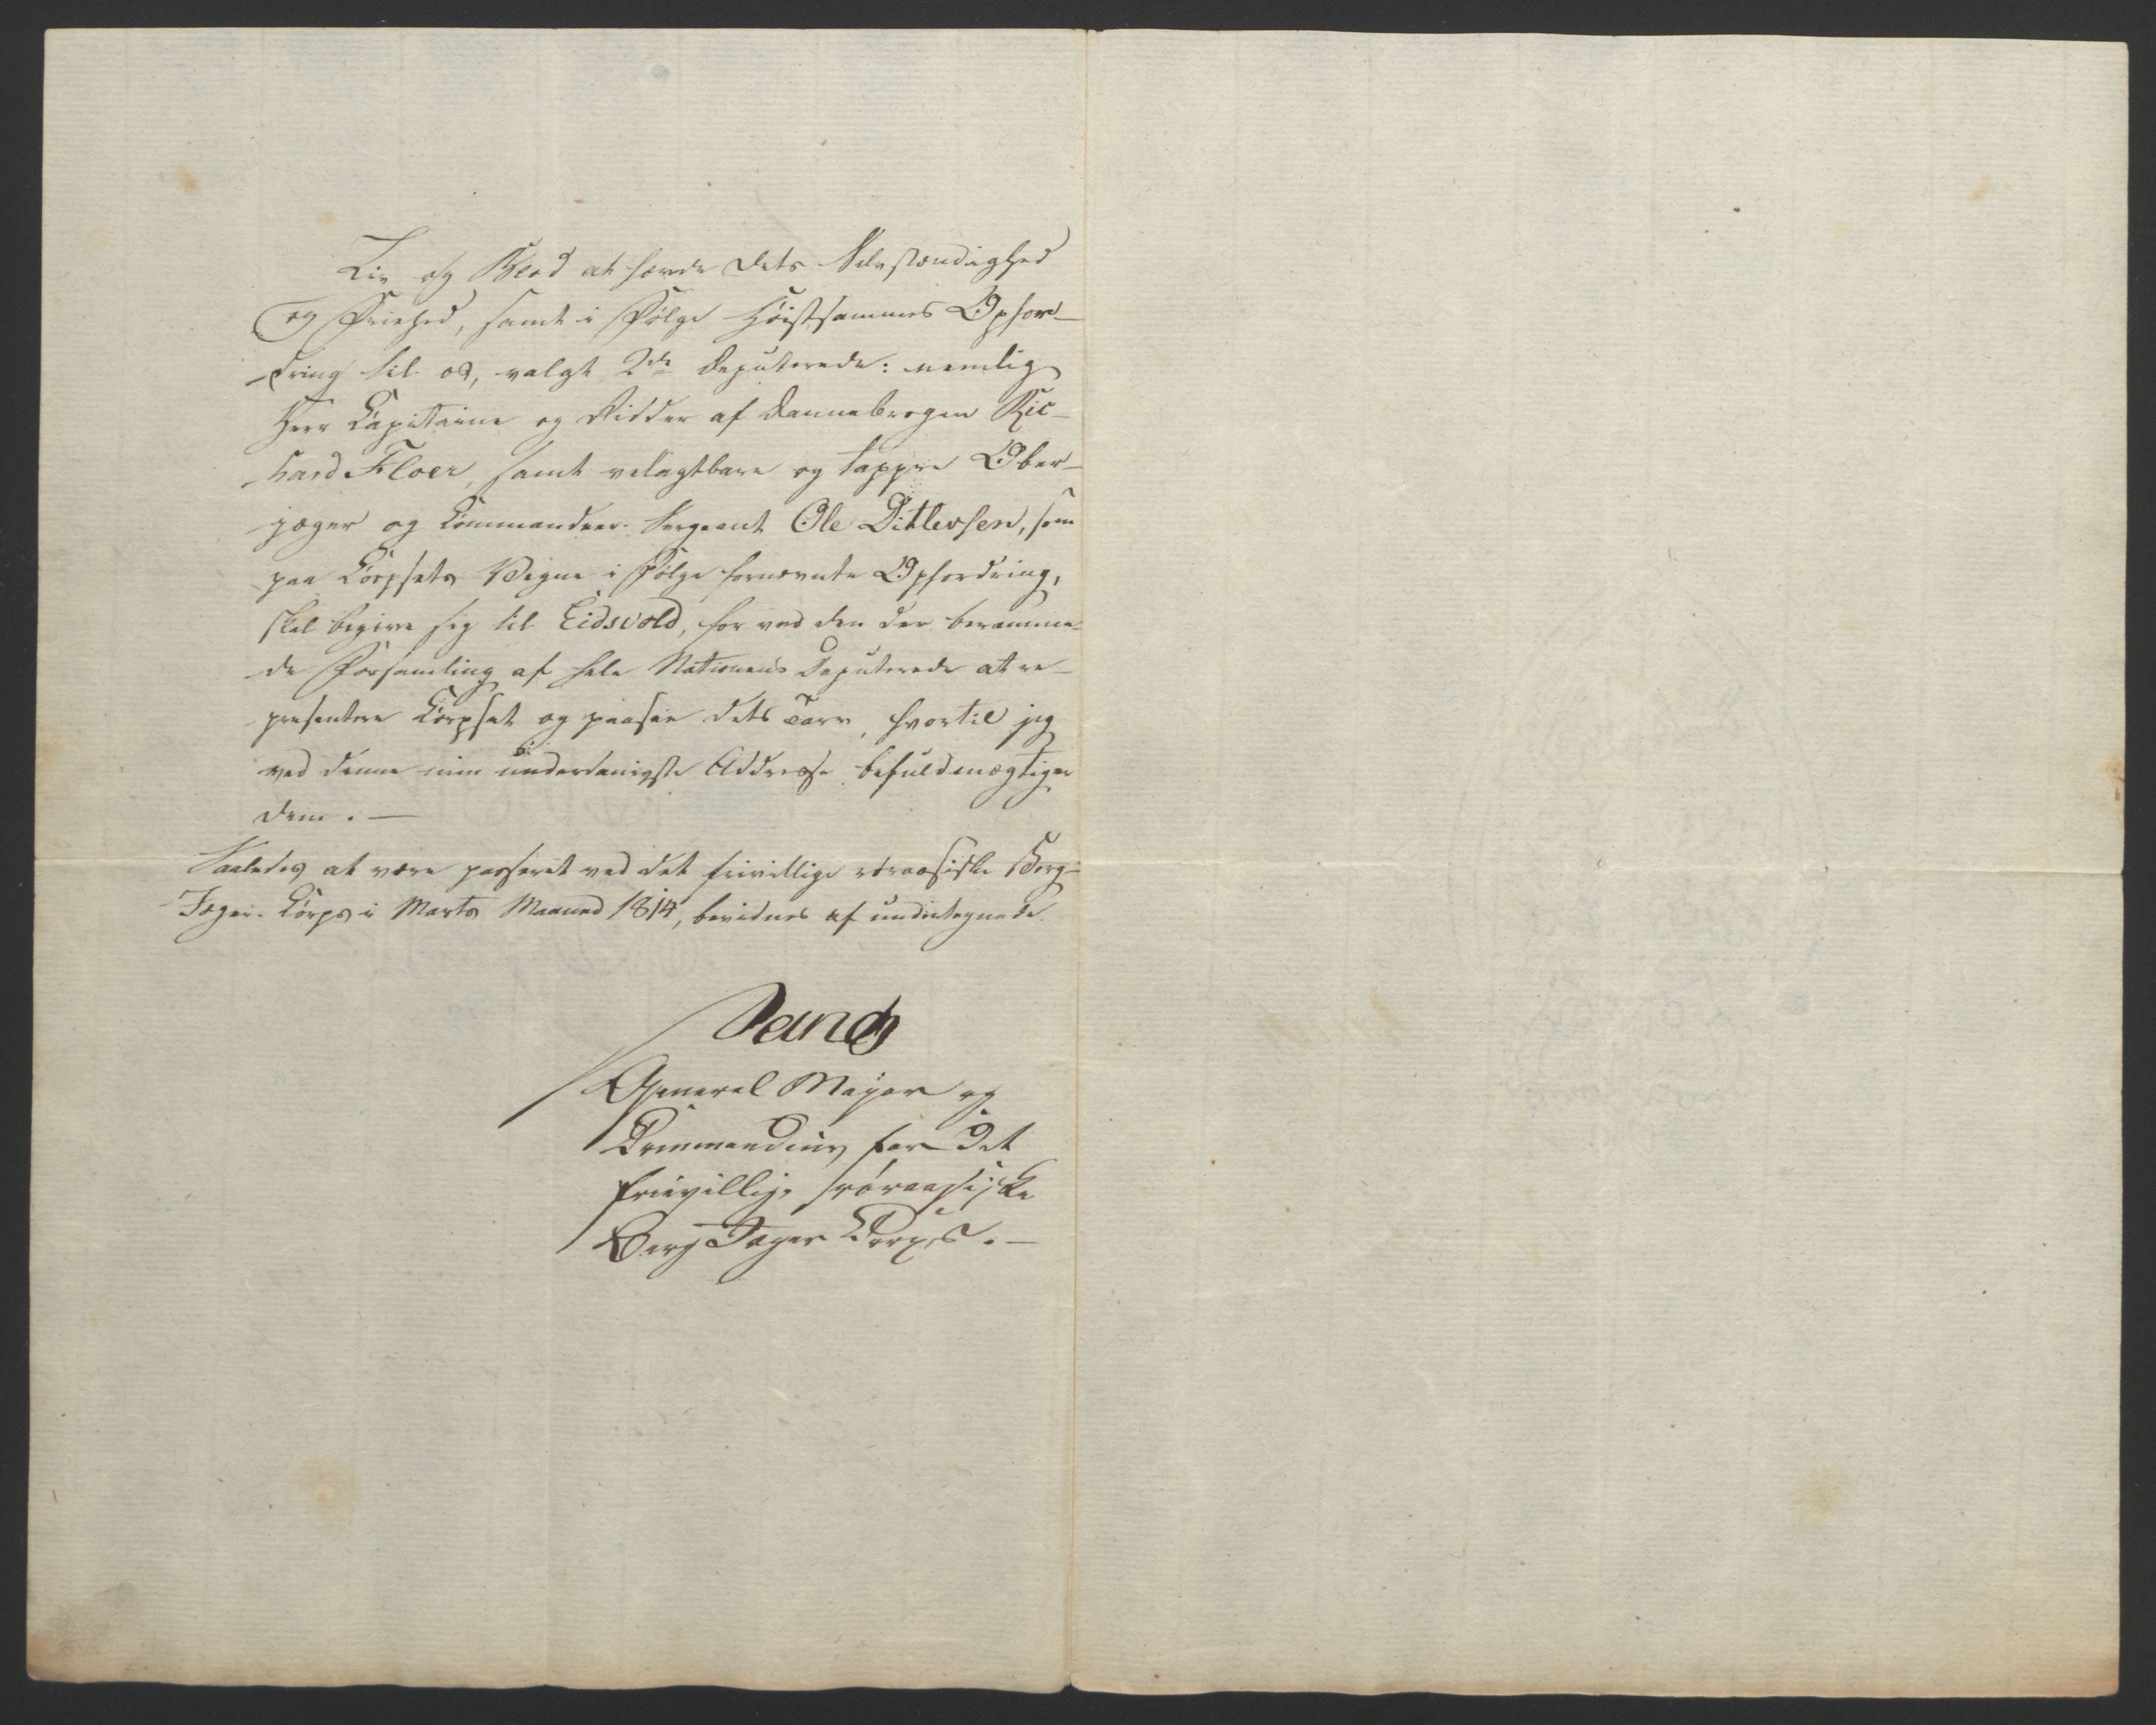 Liv og Blod at hævde dets Selvstændighed
og Friehed, samt i Følge Høistsammes Opfor-
dring til os, valgt 2de Deputerede: nemlig
Herr Capitaine og Ridder af Dannebrogen Ric-
hard Floer, samt velagtbare og tappre Ober-
jæger og Commandeer-Sergeant Ole Ditlevsen, som
paa Corpsets Vegne i Følge fornævnte Opfordring,
skal begive sig til Eidsvold, for ved den der beramme-
de Forsamling af hele Nationens Deputerede at re-
presentere Corpset og paasee dets Tarv, hvortil jeg
ved denne min underdanigste Addresse befuldmægtiger
dem. —
Saaledes at være passeret ved det frivillige røraasiske Berg-
Jæger-Corps i Marts Maaned 1814, bevidnes af undertegnede.
General Major og
Commandeur for det
frievillige røraasiske
Berg Jæger Corps. —